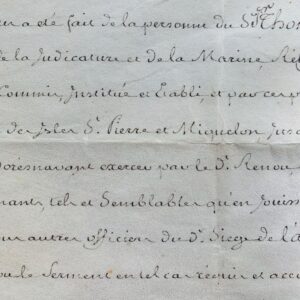 a été fait de la personne du Sr Thom
de la Judicature et de la Marine, Re
Commis, Institué et Etabli, et par ces p
des isles St. Pierre et Miquelon, Jus
Doresnavant exercer par le Sr. Renou,
nants, tels et Semblables qu'en Jouis
autres officiers du dt. Siege de l'a
le Serment en tel cas requis et acc